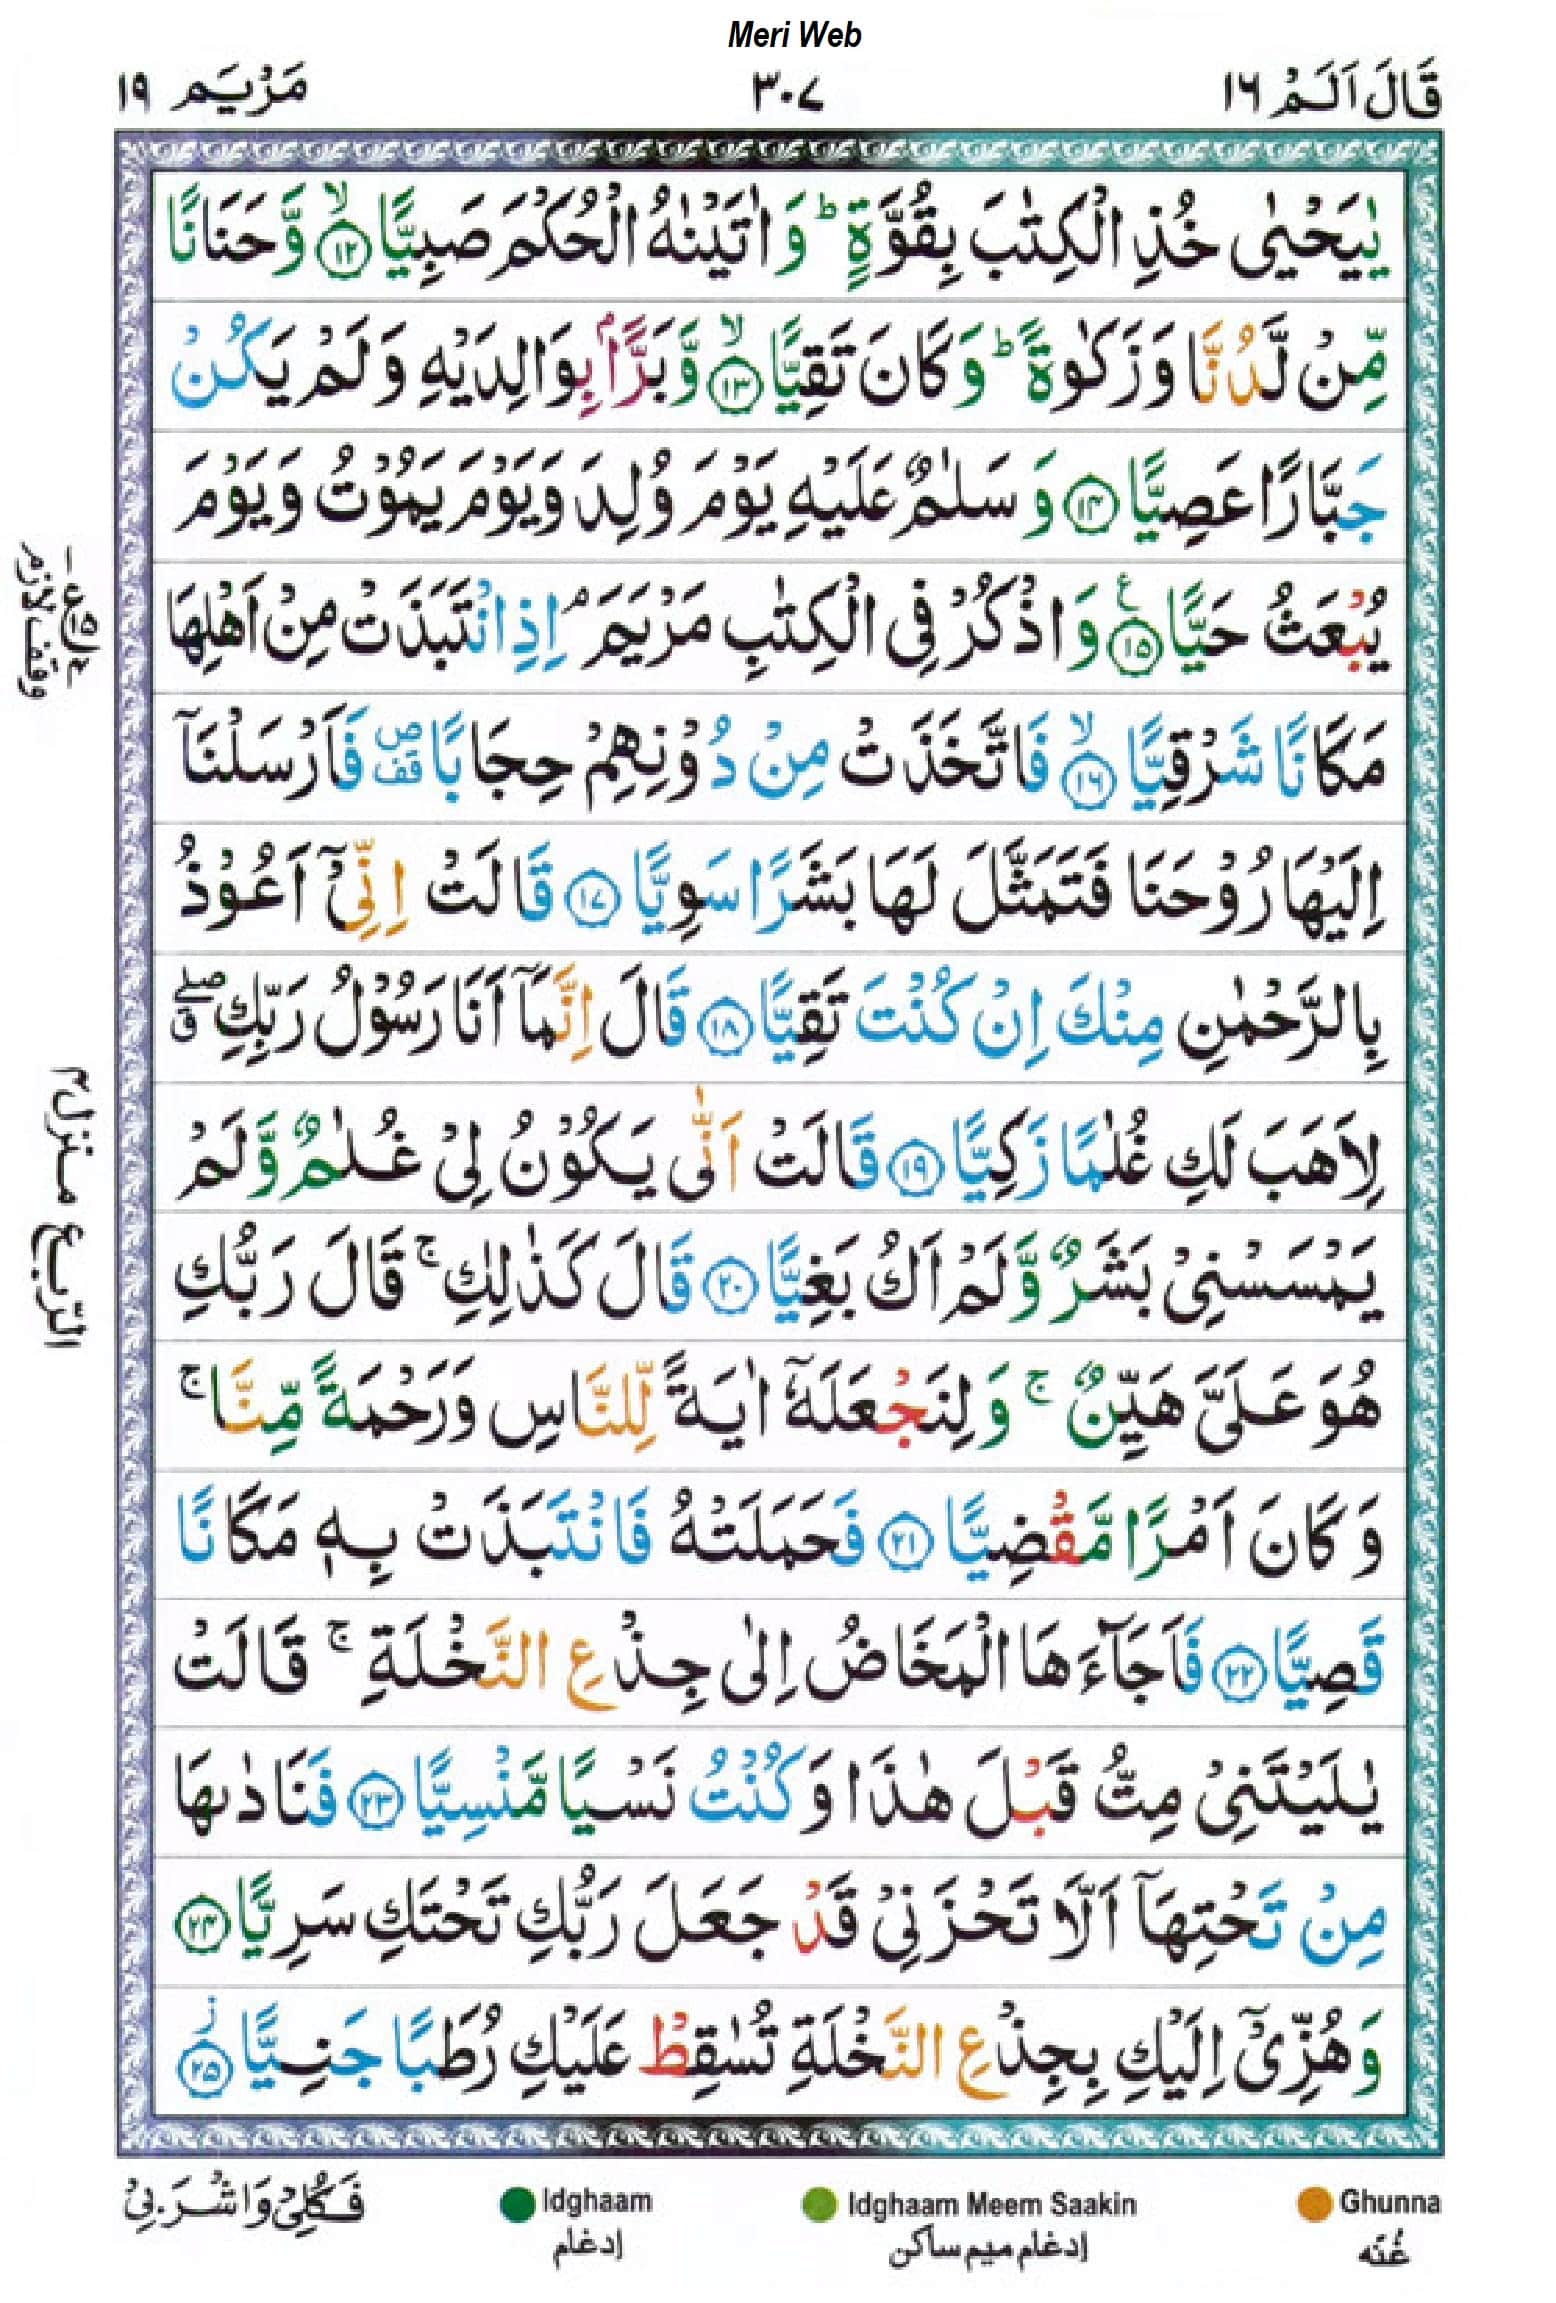 Meri Web
قَالَ اَلَمْ ١٦ ٣٠٧ مَرْيَم ١٩
يٰيَحْيٰى خُذِ الْكِتٰبَ بِقُوَّةٍ ؕ وَ اٰتَيْنٰهُ الْحُكْمَ صَبِيًّا ۙ ﴿١٢﴾ وَّحَنَانًا
مِّنْ لَّدُنَّا وَ زَكٰوةً ؕ وَ كَانَ تَقِيًّا ۙ ﴿١٣﴾ وَّ بَرًّۢا بِوَالِدَيْهِ وَ لَمْ يَكُنْ
جَبَّارًا عَصِيًّا ﴿١٤﴾ وَ سَلٰمٌ عَلَيْهِ يَوْمَ وُلِدَ وَيَوْمَ يَمُوْتُ وَ يَوْمَ
يُبْعَثُ حَيًّا ﴿١٥﴾ ع وَ اذْكُرْ فِى الْكِتٰبِ مَرْيَمَ ۘ اِذِ انْتَبَذَتْ مِنْ اَهْلِهَا
مَكَانًا شَرْقِيًّا ۙ ﴿١٦﴾ فَاتَّخَذَتْ مِنْ دُوْنِهِمْ حِجَابًا ص قف فَاَرْسَلْنَاۤ
اِلَيْهَا رُوْحَنَا فَتَمَثَّلَ لَهَا بَشَرًا سَوِيًّا ﴿١٧﴾ قَالَتْ اِنِّىْۤ اَعُوْذُ
بِالرَّحْمٰنِ مِنْكَ اِنْ كُنْتَ تَقِيًّا ﴿١٨﴾ قَالَ اِنَّمَاۤ اَنَا رَسُوْلُ رَبِّكِ ۖ ق
لِاَهَبَ لَكِ غُلٰمًا زَكِيًّا ﴿١٩﴾ قَالَتْ اَنّٰى يَكُوْنُ لِىْ غُلٰمٌ وَّ لَمْ
يَمْسَسْنِىْ بَشَرٌ وَّ لَمْ اَكُ بَغِيًّا ﴿٢٠﴾ قَالَ كَذٰلِكِ ۚ قَالَ رَبُّكِ
هُوَ عَلَىَّ هَيِّنٌ ۚ وَ لِنَجْعَلَهٗۤ اٰيَةً لِّلنَّاسِ وَرَحْمَةً مِّنَّا ۚ
وَ كَانَ اَمْرًا مَّقْضِيًّا ﴿٢١﴾ فَحَمَلَتْهُ فَانْتَبَذَتْ بِهٖ مَكَانًا
قَصِيًّا ﴿٢٢﴾ فَاَجَآءَهَا الْمَخَاضُ اِلٰى جِذْعِ النَّخْلَةِ ۚ قَالَتْ
يٰلَيْتَنِىْ مِتُّ قَبْلَ هٰذَا وَ كُنْتُ نَسْيًا مَّنْسِيًّا ﴿٢٣﴾ فَنَادٰىهَا
مِنْ تَحْتِهَاۤ اَلَّا تَحْزَنِىْ قَدْ جَعَلَ رَبُّكِ تَحْتَكِ سَرِيًّا ﴿٢٤﴾
وَ هُزِّىْۤ اِلَيْكِ بِجِذْعِ النَّخْلَةِ تُسٰقِطْ عَلَيْكِ رُطَبًا جَنِيًّا ز ﴿٢٥﴾
وقف لازم
الرّبع منزل ٤
Ghunna Idghaam Meem Saakin Idghaam فَكُلِىْ وَاشْرَبِىْ
غُنّه إدغام ميم ساكن إدغام